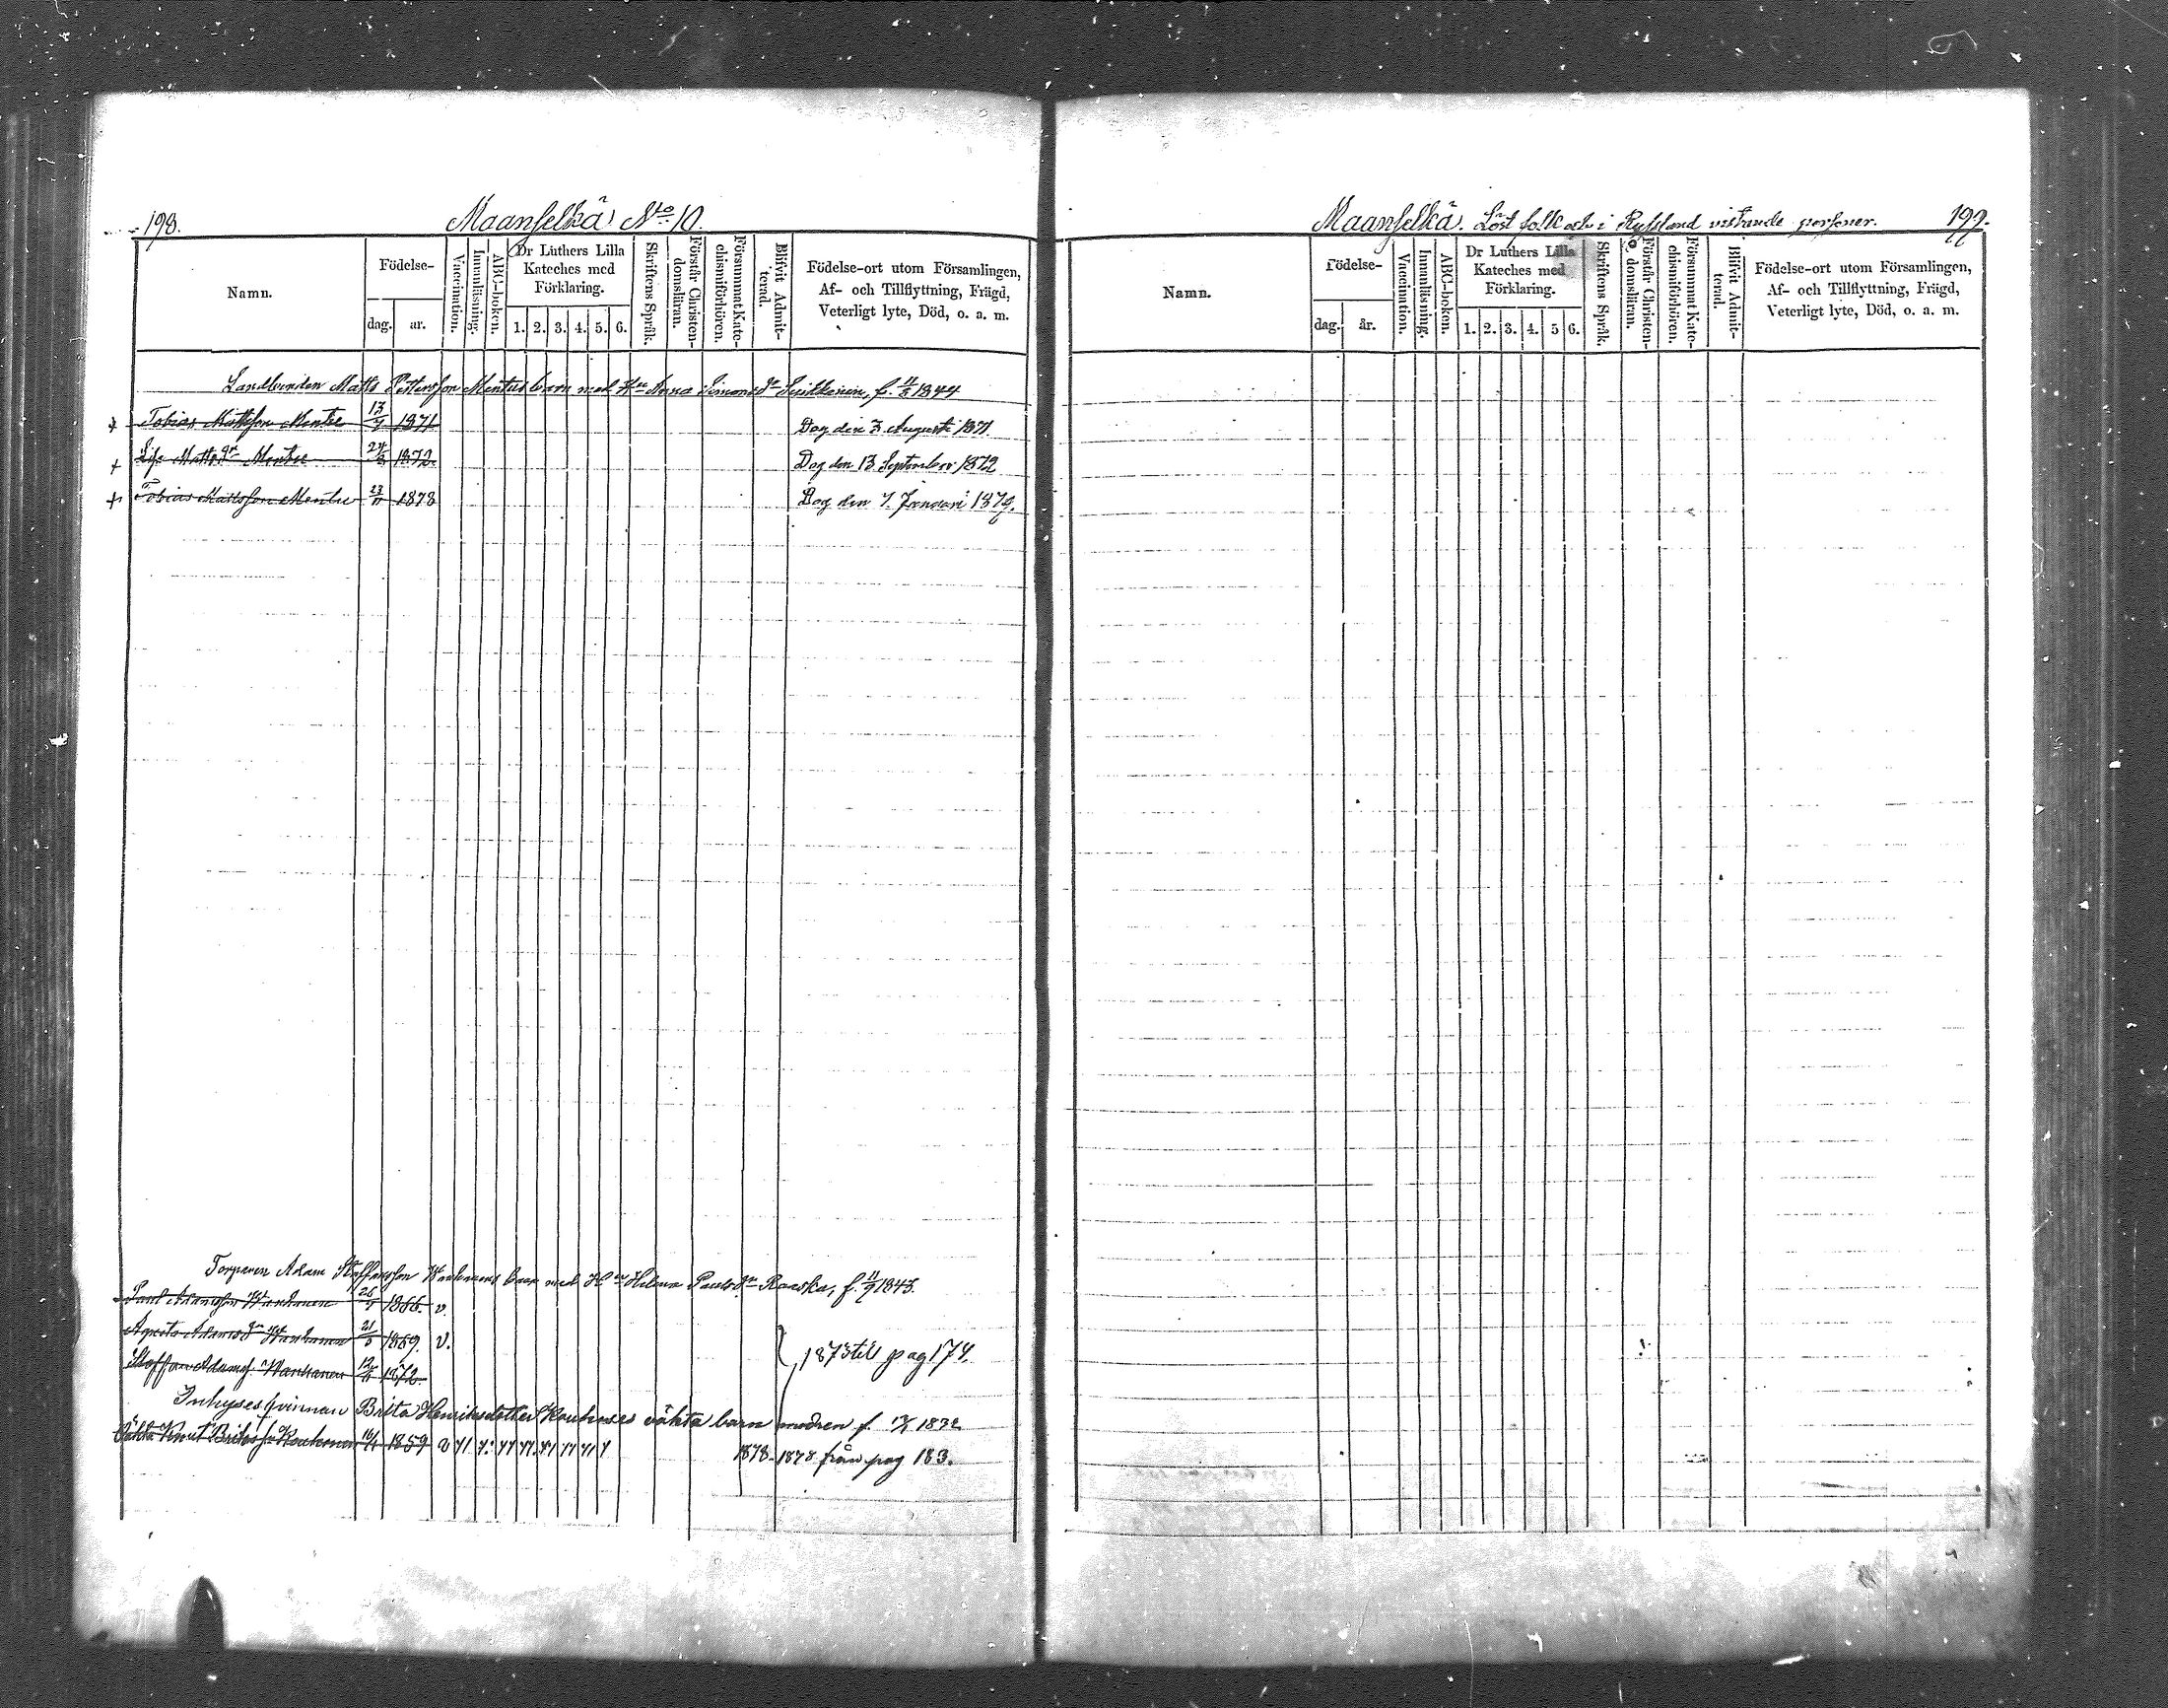 198.
Maanselkä No 10.
Namn.
Födelse-
dag.
år.
Vaccination.
Innanläsning.
ABC-boken.
Dr Luthers Lilla
Kateches med
Förklaring.
1. 2. 3. 4. 5. 6.
Skriftens Språk.
Förstår Christen-
domsläran.
Försummat Kate-
chismiförhören.
Blifvit Admit-
terad.
Födelse-ort utom Församlingen,
Af- och Tillflyttning, Frägd,
Veterligt lyte, Död, o. a. m.
Landbonden Matts Pettersson Mentus barn med Anna Simonsdr f. 1844
+ Tobias Mattsson Mentu 13/7 1871 Dog den 3 Augusti 1871.
+ Lisa Mattsdr Mentu 1872. Dog den 13 September 1872
+ Tobias Mattsson Mentu 23/11 1878 Dog den 7. Januari 1879.
Torparen Adam Staffansson barn med Helena Paulsdr Raaska, f. 11/9 1843.
Paul Adamsson 1866. v.
Adamsdr 1869. v.
Staffan Adamss. 1872.
1873 till pag 174.
Inhysesqvinnan Brita Henriksdotter oäkta barn modren f. 1832
Oäkta Knut 1859 v
1878 1878 från pag 183.
Maanselkä. Löst folk och i Ryssland vistande personer.
199.
Namn.
Födelse-
dag.
år.
Vaccination.
Innanläsning.
ABC-boken.
Dr Luthers Lilla
Kateches med
Förklaring.
1. 2. 3. 4. 5 6.
Skriftens Språk.
Förstår Christen-
domsläran.
Försummat Kate-
chismiförhören.
Blifvit Admit-
terad.
Födelse-ort utom Församlingen,
Af- och Tillflyttning, Frägd,
Veterligt lyte, Död, o. a. m.